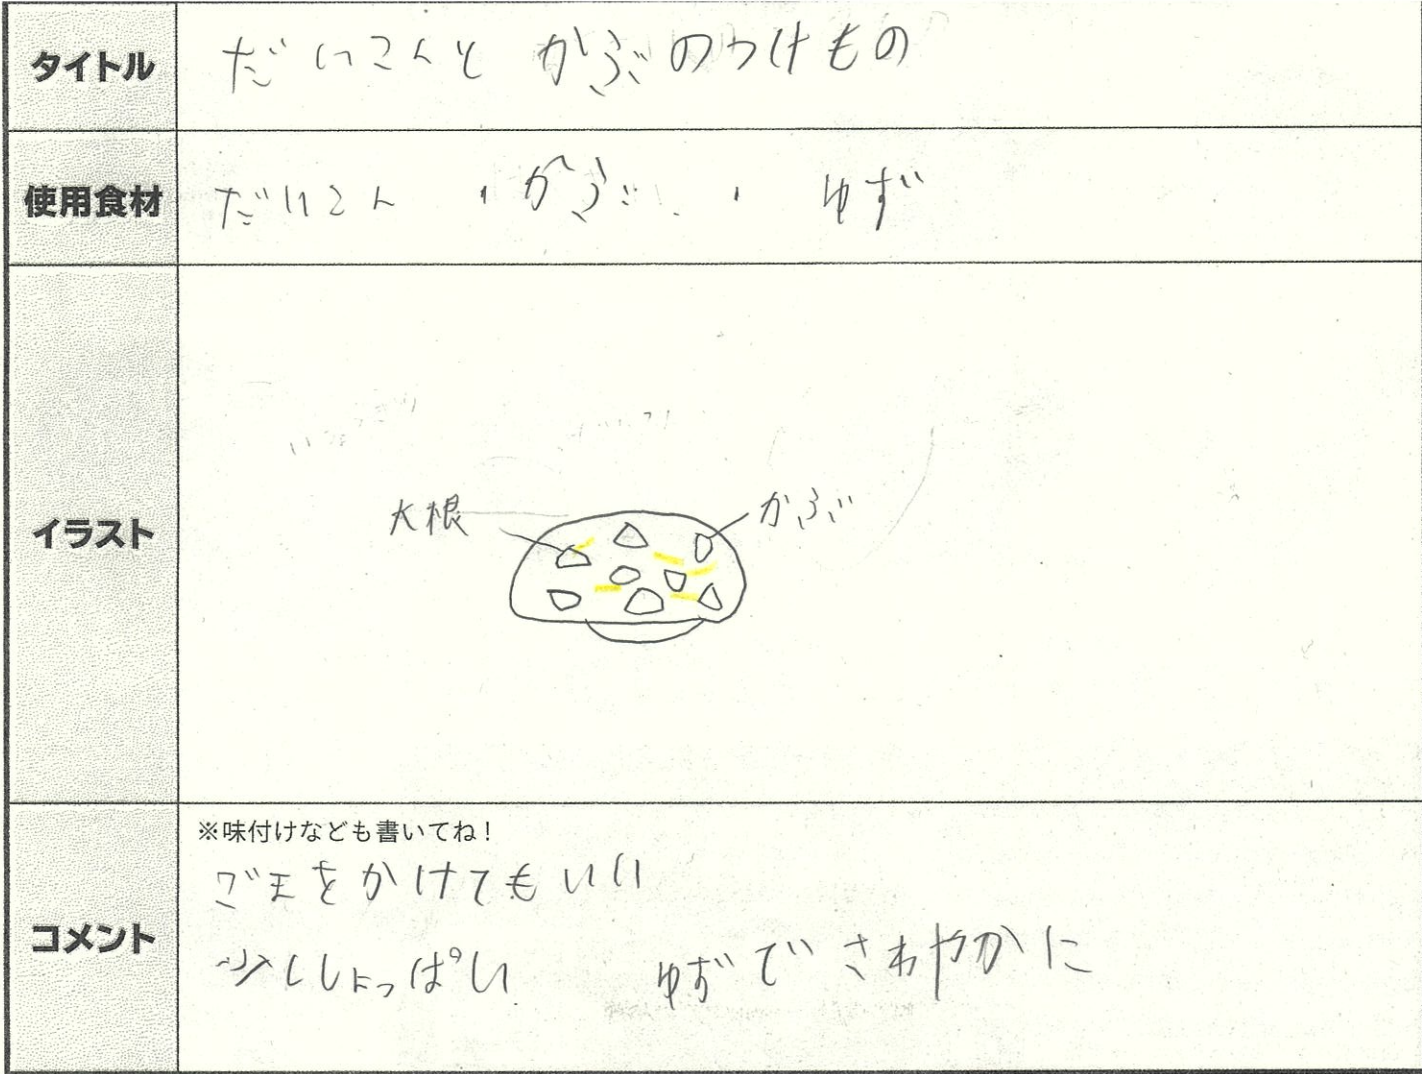 タイトル
だいこんと かぶのつけもの
使用食材
だいこん ・かぶ ・ ゆず
イラスト
大根
かぶ
コメント
※味付けなども書いてね!
ごまをかけてもいい
少ししょっぱい ゆずでさわやかに